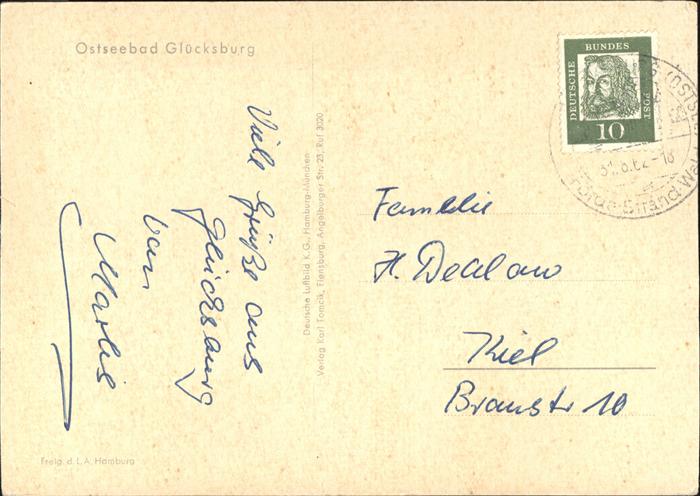 Ostseebad Glücksburg
Viele Grüße aus
Glücksburg
von
Marlis
Deutsche Luftbild K.G., Hamburg-München
Verlag Karl Tomcik, Flensburg, Angelburger Str. 23, Ruf 3020
DEUTSCHE
BUNDES
POST
10
31.8.62-18
Förde-Strand-Wald
Familie
H. Dechow
Kiel
Braustr 10
Freig. d. L.A. Hamburg